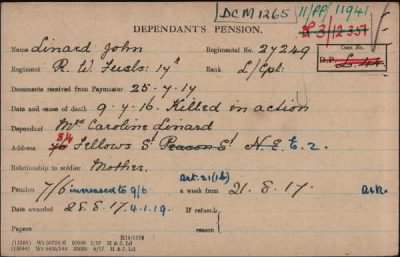 DCM1265
11/PP/11941
8 3/12357
DEPENDANT'S PENSION.
Name Linard John Regimental No. 27249
Case No.
Regiment R. W. Fusrs. 14th Rank L/Cpl.
D.P.
Documents received from Paymaster 25.7.17
Date and cause of death 9.7.16. Killed in action
Dependant Mrs Caroline Linard
Address Fellows St Pearson St N.E.2.
Relationship to soldier Mother.
art. 21(1b)
Pension 7/6 increased to 9/6 a week from 21.8.17.
Date awarded 28.8.17. 4.1.19. If refused,
reason
Papers